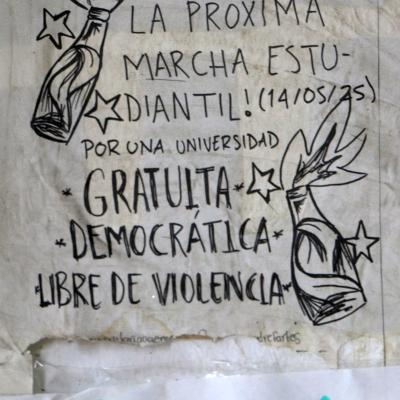 LA PROXIMA
MARCHA ESTU-
DIANTIL! (14/05/25)
POR UNA UNIVERSIDAD
* GRATUITA *
* DEMOCRÁTICA *
*LIBRE DE VIOLENCIA*